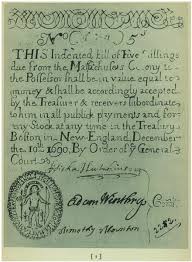 No 5s
THIS Indented Bill of Five Shillings
due from the Massachusets Colony to
the Possessor shall be in value equal to
money & shall be accordingly accepted
by the Treasurer & receivers subordinate
to him in all publick payments and for
any Stock at any time in the Treasury
Boston in New-England. December
the 10th. 1690. By Order of ye General
Court
Adam Winthrop
Timothy Thornton
Comtee
[1]